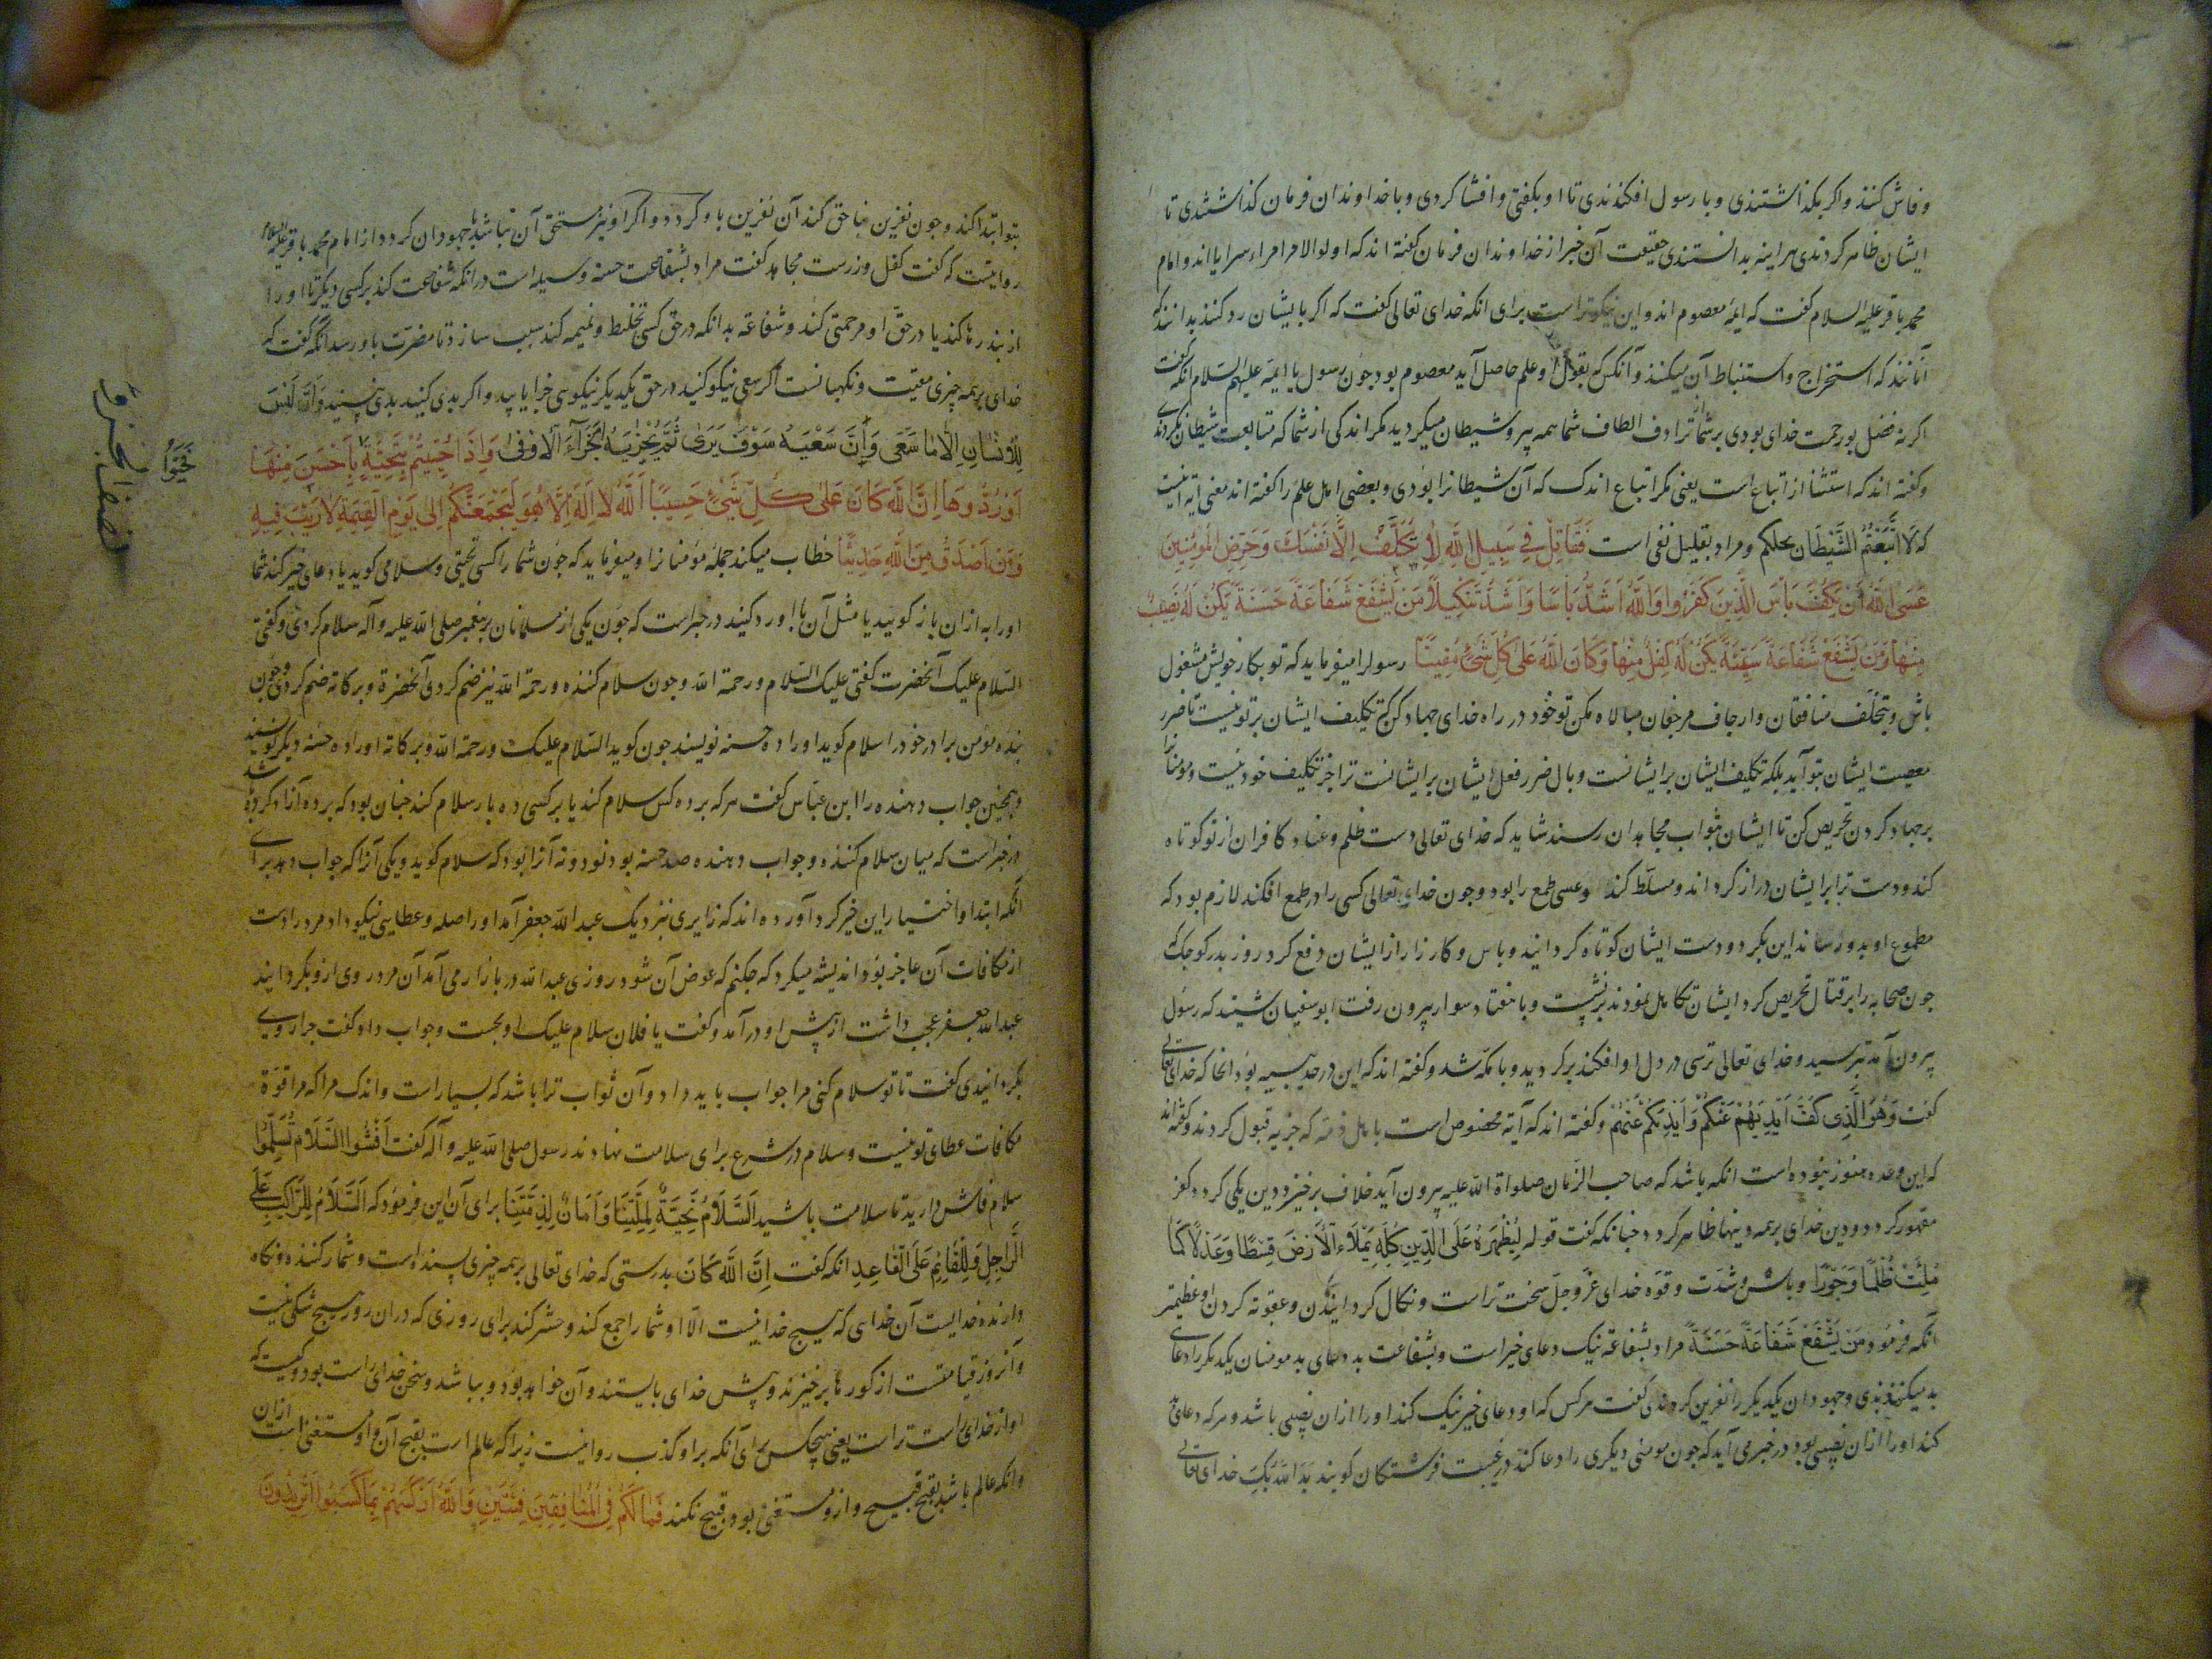 وفاش کنند واکر بگذاشتندی وبا رسول افکندندی تا او بکفتی وافشا کردی وبا خداوندان فرمان کذاشتندی تا
ایشان ظاهر کردندی هراینه بدانستندی حقیقت آن خبر از خداوندان فرمان کفته اند که اولوالامر امراء سرایا اند وامام
محمد باقر علیه السلام کفت که ایمهٔ معصوم اند واین نیکوتر است برای انکه خدای تعالی کفت که اکر بایشان رد کنند بدانند که
آنانند که استخراج واستنباط آن میکنند وآنکس که بقول او علم حاصل آید معصوم بود چون رسول یا ایمه علیهم السلام انکه کفت
اکر نه فضل ورحمت خدای بودی بر شما وترادف الطاف شما همه پیرو شیطان میکردید مکر اندکی از شما که متابعت شیطان نکردندی
وکفته اند که استثنا از اتباع است یعنی مکر اتباع اندک که آن شیطانرا بودی وبعضی اهل علم را کفته اند معنی آیه اینست
که لا اتبعتم الشیطان کلکم ومراد بقلیل نفی است فَقَاتِلْ فِي سَبِيلِ اللَّهِ لَا تُكَلَّفُ إِلَّا نَفْسَكَ وَحَرِّضِ الْمُؤْمِنِينَ
عَسَى اللَّهُ أَنْ يَكُفَّ بَأْسَ الَّذِينَ كَفَرُوا وَاللَّهُ أَشَدُّ بَأْسًا وَأَشَدُّ تَنْكِيلًا مَنْ يَشْفَعْ شَفَاعَةً حَسَنَةً يَكُنْ لَهُ نَصِيبٌ
مِنْهَا وَمَنْ يَشْفَعْ شَفَاعَةً سَيِّئَةً يَكُنْ لَهُ كِفْلٌ مِنْهَا وَكَانَ اللَّهُ عَلَى كُلِّ شَيْءٍ مُقِيتًا رسولرا میفرماید که تو بکار خویش مشغول
باش وبتخلف منافقان وارجاف مرجفان مبالاه مکن تو خود در راه خدای جهاد کن که تکلیف ایشان بر تو نیست تا ضرر
معصیت ایشان بتو آید بلکه تکلیف ایشان بر ایشانست وبال ضرر فعل ایشان بر ایشانست ترا جز تکلیف خود نیست ومومنانرا
بر جهاد کردن تحریص کن تا ایشان بثواب مجاهدان رسند شاید که خدای تعالی دست ظلم وعناد کافران از تو کوتاه
کند ودست ترا بر ایشان دراز کرداند ومسلط کند وعسی طمع را بود وچون خدای تعالی کسی را در طمع افکند لازم بود که
مطموع او بدو رساند این بکرد ودست ایشان کوتاه کردانید وباس وکارزار از ایشان دفع کرد روز بدر کوچک که
چون صحابه را بر قتال تحریص کرد ایشان تکاهل نمودند برنشست وبا هفتاد سوار بیرون رفت ابوسفیان شنید که رسول
بیرون آمد بترسید وخدای تعالی ترسی در دل او افکند برکردید وبا مکه شد وکفته اند که این در حدیبیه بود انجا که خدای تعالی
کفت وَهُوَ الَّذِي كَفَّ أَيْدِيَهُمْ عَنْكُمْ وَأَيْدِيَكُمْ عَنْهُمْ وکفته اند که آیه مخصوص است باهل ذمه که جزیه قبول کردند وکفته اند
که این وعده هنوز نبوده است انکه باشد که صاحب الزمان صلواة الله علیه بیرون آید خلاف برخیزد ودین یکی کردد وکفر
مقهور کردد ودین خدای بر همه دینها ظاهر کردد چنانکه کفت قوله لِيُظْهِرَهُ عَلَى الدِّينِ كُلِّهِ يَمْلَأُ الْأَرْضَ قِسْطًا وَعَدْلًا كَمَا
مُلِئَتْ ظُلْمًا وَجَوْرًا وباس وشدت وقوه خدای عز وجل سخت تر است ونکال کردانیدن وعقوبه کردن او عظیمتر
آنکه فرمود مَنْ يَشْفَعْ شَفَاعَةً حَسَنَةً مراد بشفاعة نیک دعای خیر است وبشفاعت بد دعای بد مومنان یکدیکر را دعای
بد میکنندی وجهودان یکدیکر را نفرین کردندی کفت هرکس که او دعای خیر نیک کند او را ازان نصیبی باشد وهرکه دعای بد
کند او را ازان نصیبی بود در خبر می آید که چون مومنی دیکری را دعا کند در غیبت فرشتکان کویند بدأ الله بک خدای تعالی
بتو ابتدا کند وچون نفرین بناحق کند آن نفرین باو کردد واکر او نیز مستحق آن نباشد با جهودان کردد از امام محمد باقر علیه السلام
روایتست که کفت کفل وزرست مجاهد کفت مراد بشفاعت حسنه وسیله است در انکه شفاعت کند بر کسی دیکر تا او را
از بند رها کند یا در حق او مرحمتی کند وشفاعة بد انکه در حق کسی تخلیط ونمیمه کند سبب سازد تا مضرت باو رسد انکه کفت که
خدای بر همه چیزی مقیت ونکهبانست اکر سعی نیکو کنید در حق یکدیکر نیکویی جزا یابید واکر بدی کنید بدی بینید وَأَنْ لَيْسَ
لِلْإِنْسَانِ إِلَّا مَا سَعَى وَأَنَّ سَعْيَهُ سَوْفَ يُرَى ثُمَّ يُجْزَاهُ الْجَزَاءَ الْأَوْفَى وَإِذَا حُيِّيتُمْ بِتَحِيَّةٍ بِأَحْسَنَ مِنْهَا
أَوْ رُدُّوهَا إِنَّ اللَّهَ كَانَ عَلَى كُلِّ شَيْءٍ حَسِيبًا اللَّهُ لَا إِلَهَ إِلَّا هُوَ لَيَجْمَعَنَّكُمْ إِلَى يَوْمِ الْقِيَمَةِ لَا رَيْبَ فِيهِ
وَمَنْ أَصْدَقُ مِنَ اللَّهِ حَدِيثًا خطاب میکند جمله مؤمنانرا ومیفرماید که چون شما را کسی تحیتی وسلامی کوید یا دعای خیر کند شما
او را به ازان باز کویید یا مثل آن باو رد کنید در خبر است که چون یکی از مسلمانان بر پیغمبر صلی الله علیه وآله سلام کردی وکفتی
السلام علیک آنحضرت کفتی علیک السلام ورحمة الله وچون سلام کننده ورحمة الله نیز ضم کردی آنحضرة وبرکاته ضم کردی وچون
بنده مؤمن برادر خود را سلام کوید او را ده حسنه نویسند چون کوید السلام علیک ورحمة الله وبرکاته او را ده حسنه دیکر نویسند
وهمچنین جواب دهنده را ابن عباس کفت هرکه بر ده کس سلام کند یا بر کسی ده بار سلام کند چنان بود که برده آزاد کرده باشد
در خبر است که میان سلام کننده وجواب دهنده صد حسنه بود نود ونه آنرا بود که سلام کوید ویکی آنرا که جواب دهد برای
آنکه ابتدا واختیار این خیر کرد آورده اند که زایری بنزدیک عبدالله جعفر آمد او را صله وعطایی نیکو داد مرد را دست
از مکافات آن عاجز بود واندیشه میکرد که چکنم که عوض آن شود روزی عبدالله در بازار می آمد آن مرد روی ازو بکردانید
عبدالله جعفر عجب داشت از پیش او درآمد وکفت یا فلان سلام علیک او بجست وجواب داد وکفت چرا روی
بکردانیدی کفت تا تو سلام کنی مرا جواب باید داد وآن ثواب ترا باشد که بسیار است واندک مرا که مرا قوة
مکافات عطای تو نیست وسلام در شرع برای سلامت نهادند رسول صلی الله علیه وآله کفت أَفْشُوا السَّلَامَ تَسْلَمُوا
سلام فاش دارید تا سلامت باشید السَّلَامُ تَحِيَّةٌ لِمِلَّتِنَا وَأَمَانٌ لِذِمَّتِنَا برای آن این فرمود که السَّلَامُ لِلرَّاكِبِ عَلَى
الرَّاجِلِ وَلِلْقَائِمِ عَلَى الْقَاعِدِ انکه کفت إِنَّ اللَّهَ كَانَ بدرستی که خدای تعالی بر همه چیزی پسنده است وشمار کننده ونکاه
دارنده خدایست آن خدایی که هیچ خدا نیست الا او شما را جمع کند وحشر کند برای روزی که دران روز هیچ شکی نیست
وآنروز قیامتست از کورها برخیزند وپیش خدای بایستند وآن خواهد بود وبباشد وسخن خدای راست بود وکیست که
او از خدای راست تر است یعنی هیچکس برای آنکه بر او کذب روا نیست زیرا که عالم است بقبح آن واو مستغنی است ازان
وانکه عالم باشد بقبح قبیح وازو مستغنی بود قبیح نکند فَمَا لَكُمْ فِي الْمُنَافِقِينَ فِئَتَيْنِ وَاللَّهُ أَرْكَسَهُمْ بِمَا كَسَبُوا أَتُرِيدُونَ
فَحَيُّوا